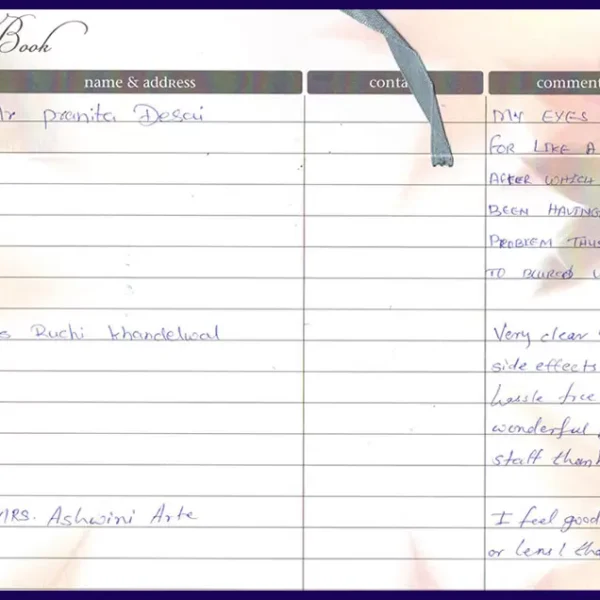 Book
name & address
comment
pranita Desai
MY EYES
FOR LIKE A
AFTER WHICH
BEEN HAVING
PROBLEM
TO BLURED
Ruchi Khandelwal
Very clear
side effects
hassle free
wonderful
staff
MRS. Ashwini Arte
I feel good
or